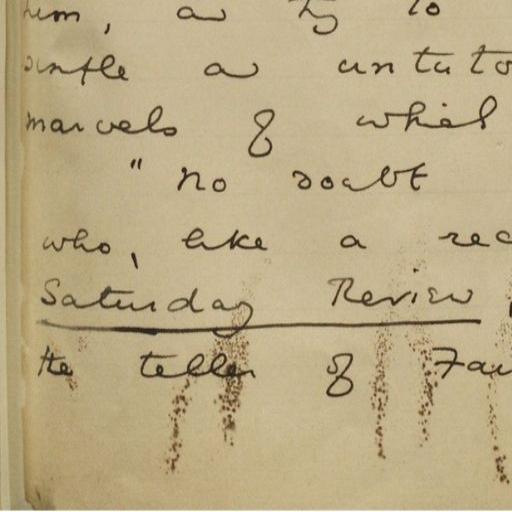 him, and try to
simple and untuto
marvels of which
" No doubt
who, like a rec
Saturday Review,
the teller of Fai